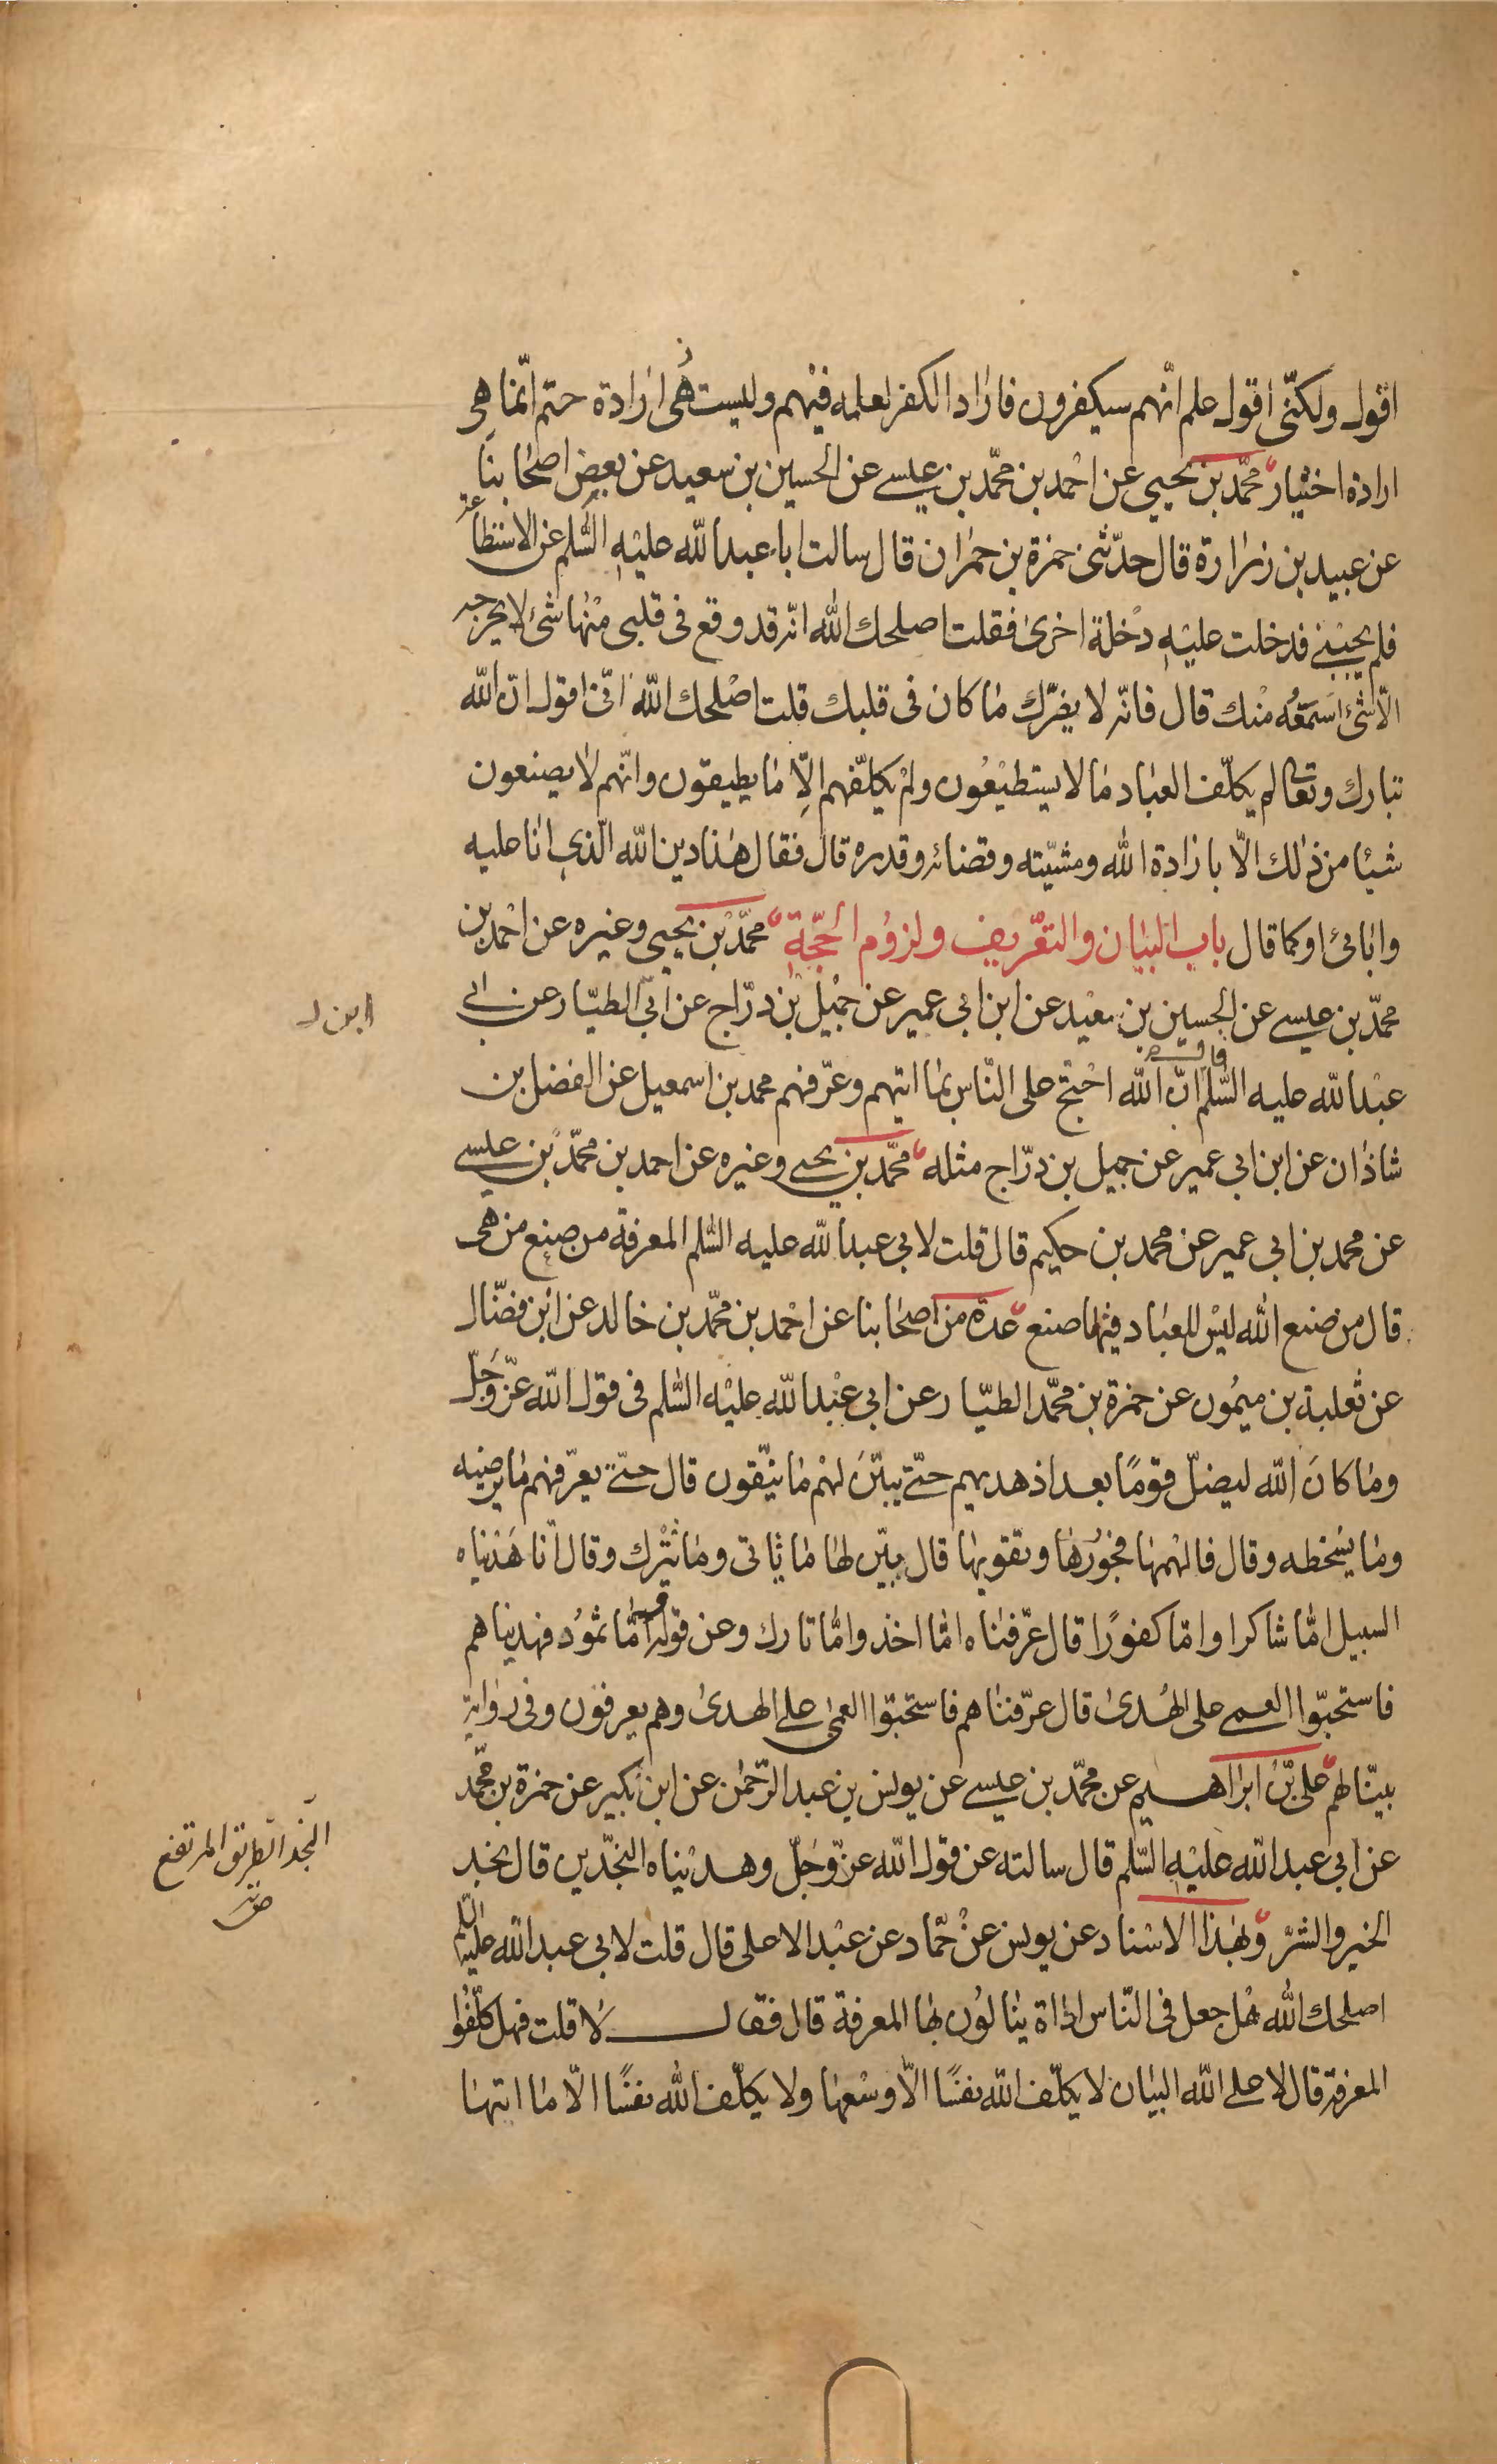 اقول ولكنّى اقول علم انّهم سيكفرون فاراد الكفر لعلمه فيهم وليست هى ارادة حتم انّما هى
ارادة اختيار محمّد بن يحيى عن احمد بن محمّد بن عيسى عن الحسين بن سعيد عن بعض اصحابنا
عن عبيد بن زرارة قال حدّثنى حمزة بن حمران قال سالت ابا عبد الله عليه السّلم عن الاستطاعة
فلم يجبنى فدخلت عليه دخلة اخرى فقلت اصلحك الله انّه قد وقع فى قلبى منها شئ لا يخرجه
الّا شئ اسمعه منك قال فانّه لا يضرّك ما كان فى قلبك قلت اصلحك الله انّى اقول انّ الله
تبارك وتعالى لم يكلّف العباد ما لا يستطيعون ولم يكلّفهم الّا ما يطيقون وانّهم لا يصنعون
شيئا من ذلك الّا بارادة الله ومشيّته وقضائه وقدره قال فقال هذا دين الله الّذى انا عليه
وابائى او كما قال باب البيان والتعريف ولزوم الحجّة محمّد بن يحيى وغيره عن احمد بن
محمّد بن عيسى عن الحسين بن سعيد عن ابن ابى عمير عن جميل بن درّاج عن ابى الطيّار عن ابى
ابن
عبد الله عليه السّلم قال انّ الله احتجّ على النّاس بما اتيهم وعرّفهم محمد بن اسمعيل عن الفضل بن
شاذان عن ابن ابى عمير عن جميل بن درّاج مثله محمّد بن يحيى وغيره عن احمد بن محمّد بن عيسى
عن محمد بن ابى عمير عن محمد بن حكيم قال قلت لابى عبد الله عليه السّلم المعرفة من صنع من هى
قال من صنع الله ليس للعباد فيها صنع عدّة من اصحابنا عن احمد بن محمّد بن خالد عن ابن فضّال
عن ثعلبة بن ميمون عن حمزة بن محمّد الطيّار عن ابى عبد الله عليه السّلم فى قول الله عزّ وجلّ
وما كان الله ليضلّ قومًا بعد اذ هديهم حتّى يبيّن لهم ما يتّقون قال حتّى يعرّفهم ما يرضيه
وما يسخطه وقال فالهمها فجورها وتقويها قال بيّن لها ما تاتى وما تترك وقال انّا هديناه
السبيل امّا شاكرا وامّا كفورًا قال عرّفناه امّا اخذ وامّا تارك وعن قوله امّا ثمود فهديناهم
فاستحبّوا العمى على الهدى قال عرّفناهم فاستحبّوا العمى على الهدى وهم يعرفون وفى رواية
بيّنا لهم على بن ابراهيم عن محمّد بن عيسى عن يونس بن عبد الرّحمن عن ابن بكير عن حمزة بن محمّد
عن ابى عبد الله عليه السّلم قال سالته عن قول الله عزّ وجلّ وهديناه النجدين قال نجد
النجد الطريق المرتفع
الخير والشرّ وبهذا الاسناد عن يونس عن حمّاد عن عبد الاعلى قال قلت لابى عبد الله عليه السلم
اصلحك الله هل جعل فى النّاس اداة ينالون بها المعرفة قال فقال لا قلت فهل كلّفوا
المعرفة قال لا على الله البيان لا يكلّف الله نفسًا الّا وسعها ولا يكلّف الله نفسًا الّا ما اتيها